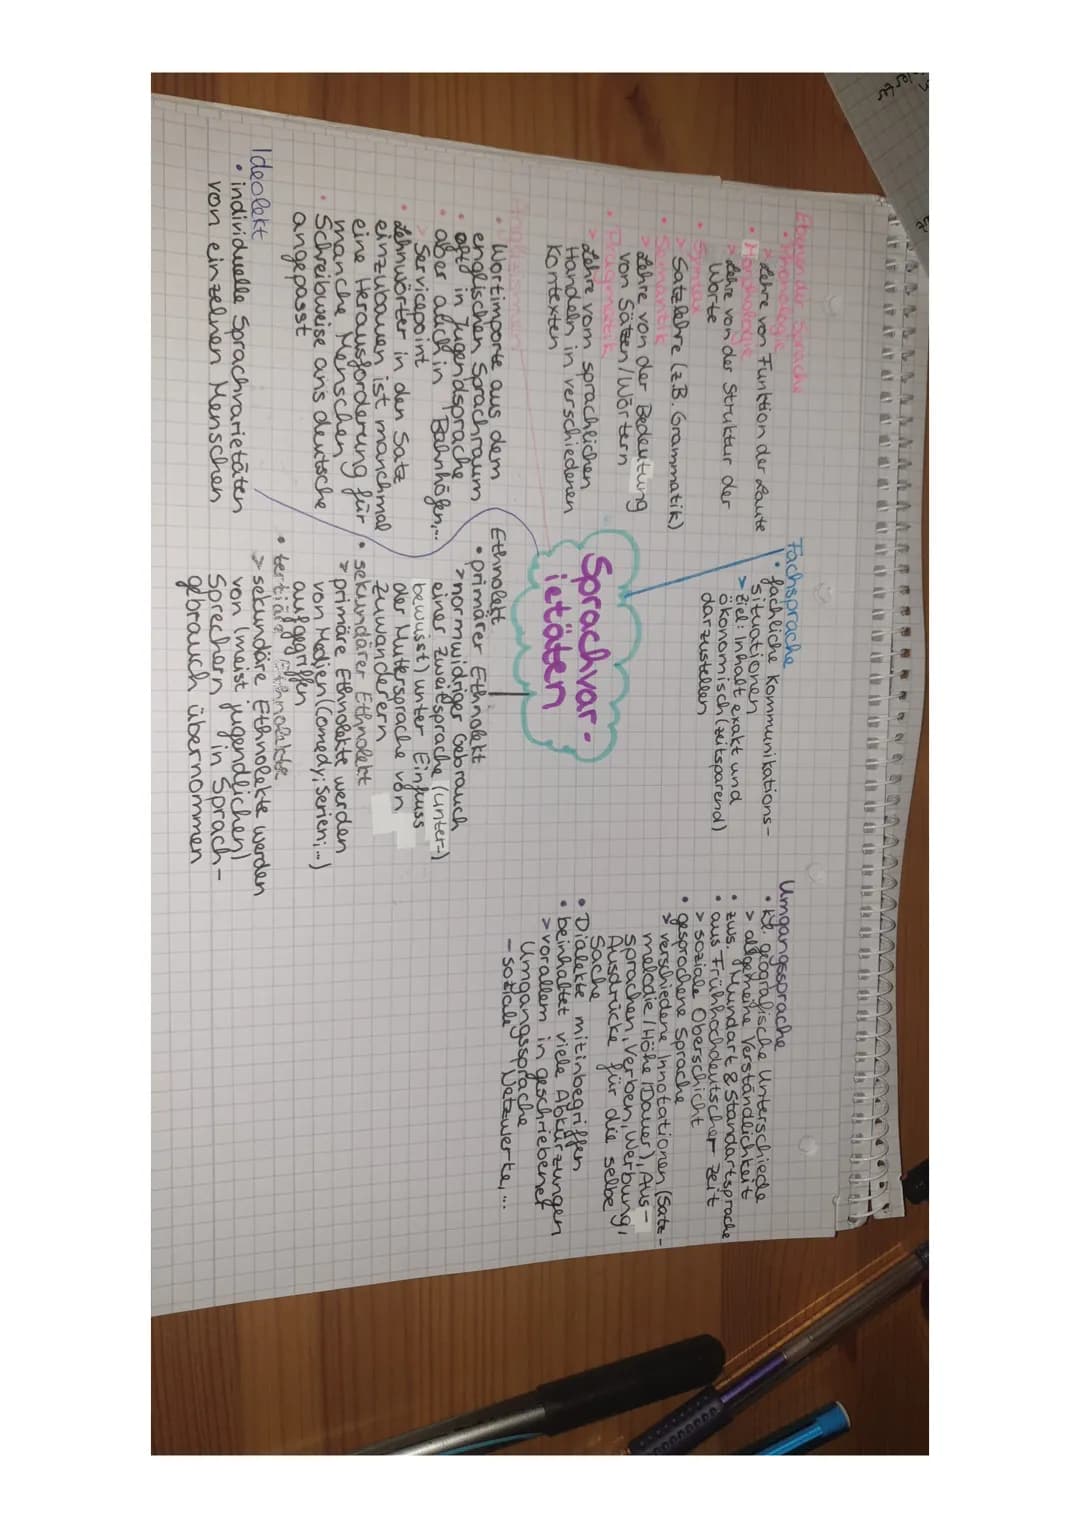 Sprachvar-
ietäten
Ebenen der Sprache
• Phonologie
> Lehre von Funktion der Laute
• Morphologie
> Lehre von der Struktur der
Worte
• Syntax
> Satzlehre (z.B. Grammatik)
• Semantik
> Lehre von der Bedeutung
von Sätzen/Wörtern
• Pragmatik
> Lehre vom sprachlichen
Handeln in verschiedenen
Kontexten
• Wortimporte aus dem
englischen Sprachraum
• oft in Jugendsprache
• aber auch in Bahnhöfen,...
> Servicepoint
• Lehnwörter in den Satz
einzubauen ist manchmal
eine Herausforderung für
manche Menschen
• Schreibweise ans deutsche
angepasst
Ideolekt
• individuelle Sprachvarietäten
von einzelnen Menschen
Fachsprache
• fachliche Kommunikations-
situationen
> Ziel: Inhalt exakt und
ökonomisch (zeitsparend)
darzustellen
Ethnolekt
• primärer Ethnolekt
> normwidriger Gebrauch
einer Zweitsprache (unter-)
bewusst) unter Einfluss
der Muttersprache von
Zuwanderern
• sekundärer Ethnolekt
> primäre Ethnolekte werden
von Medien (Comedy; Serien; ...)
aufgegriffen
• tertiäre Ethnolekte
> sekundäre Ethnolekte werden
von (meist jugendlichen)
Sprechern in Sprach-
gebrauch übernommen
Umgangssprache
• kl. geografische Unterschiede
> allgemeine Verständlichkeit
• zws. Mundart & Standartsprache
• aus Frühhochdeutscher Zeit
> soziale Oberschicht
• gesprochene Sprache
> verschiedene Innotationen (Satz-
melodie/Höhe/Dauer), Aus-
sprachen, Verben, Werbung,
Ausdrücke für die selbe
Sache
• Dialekte mitinbegriffen
• beinhaltet viele Abkürzungen
> vorallem in geschriebener
Umgangssprache
- soziale Netzwerke, ...